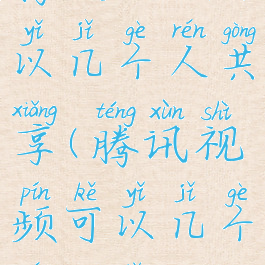 yǐ jǐ gè rén gòng
以几个人共
xiǎng téng xùn shì
享(腾讯视
pín kě yǐ jǐ gè
频可以几个